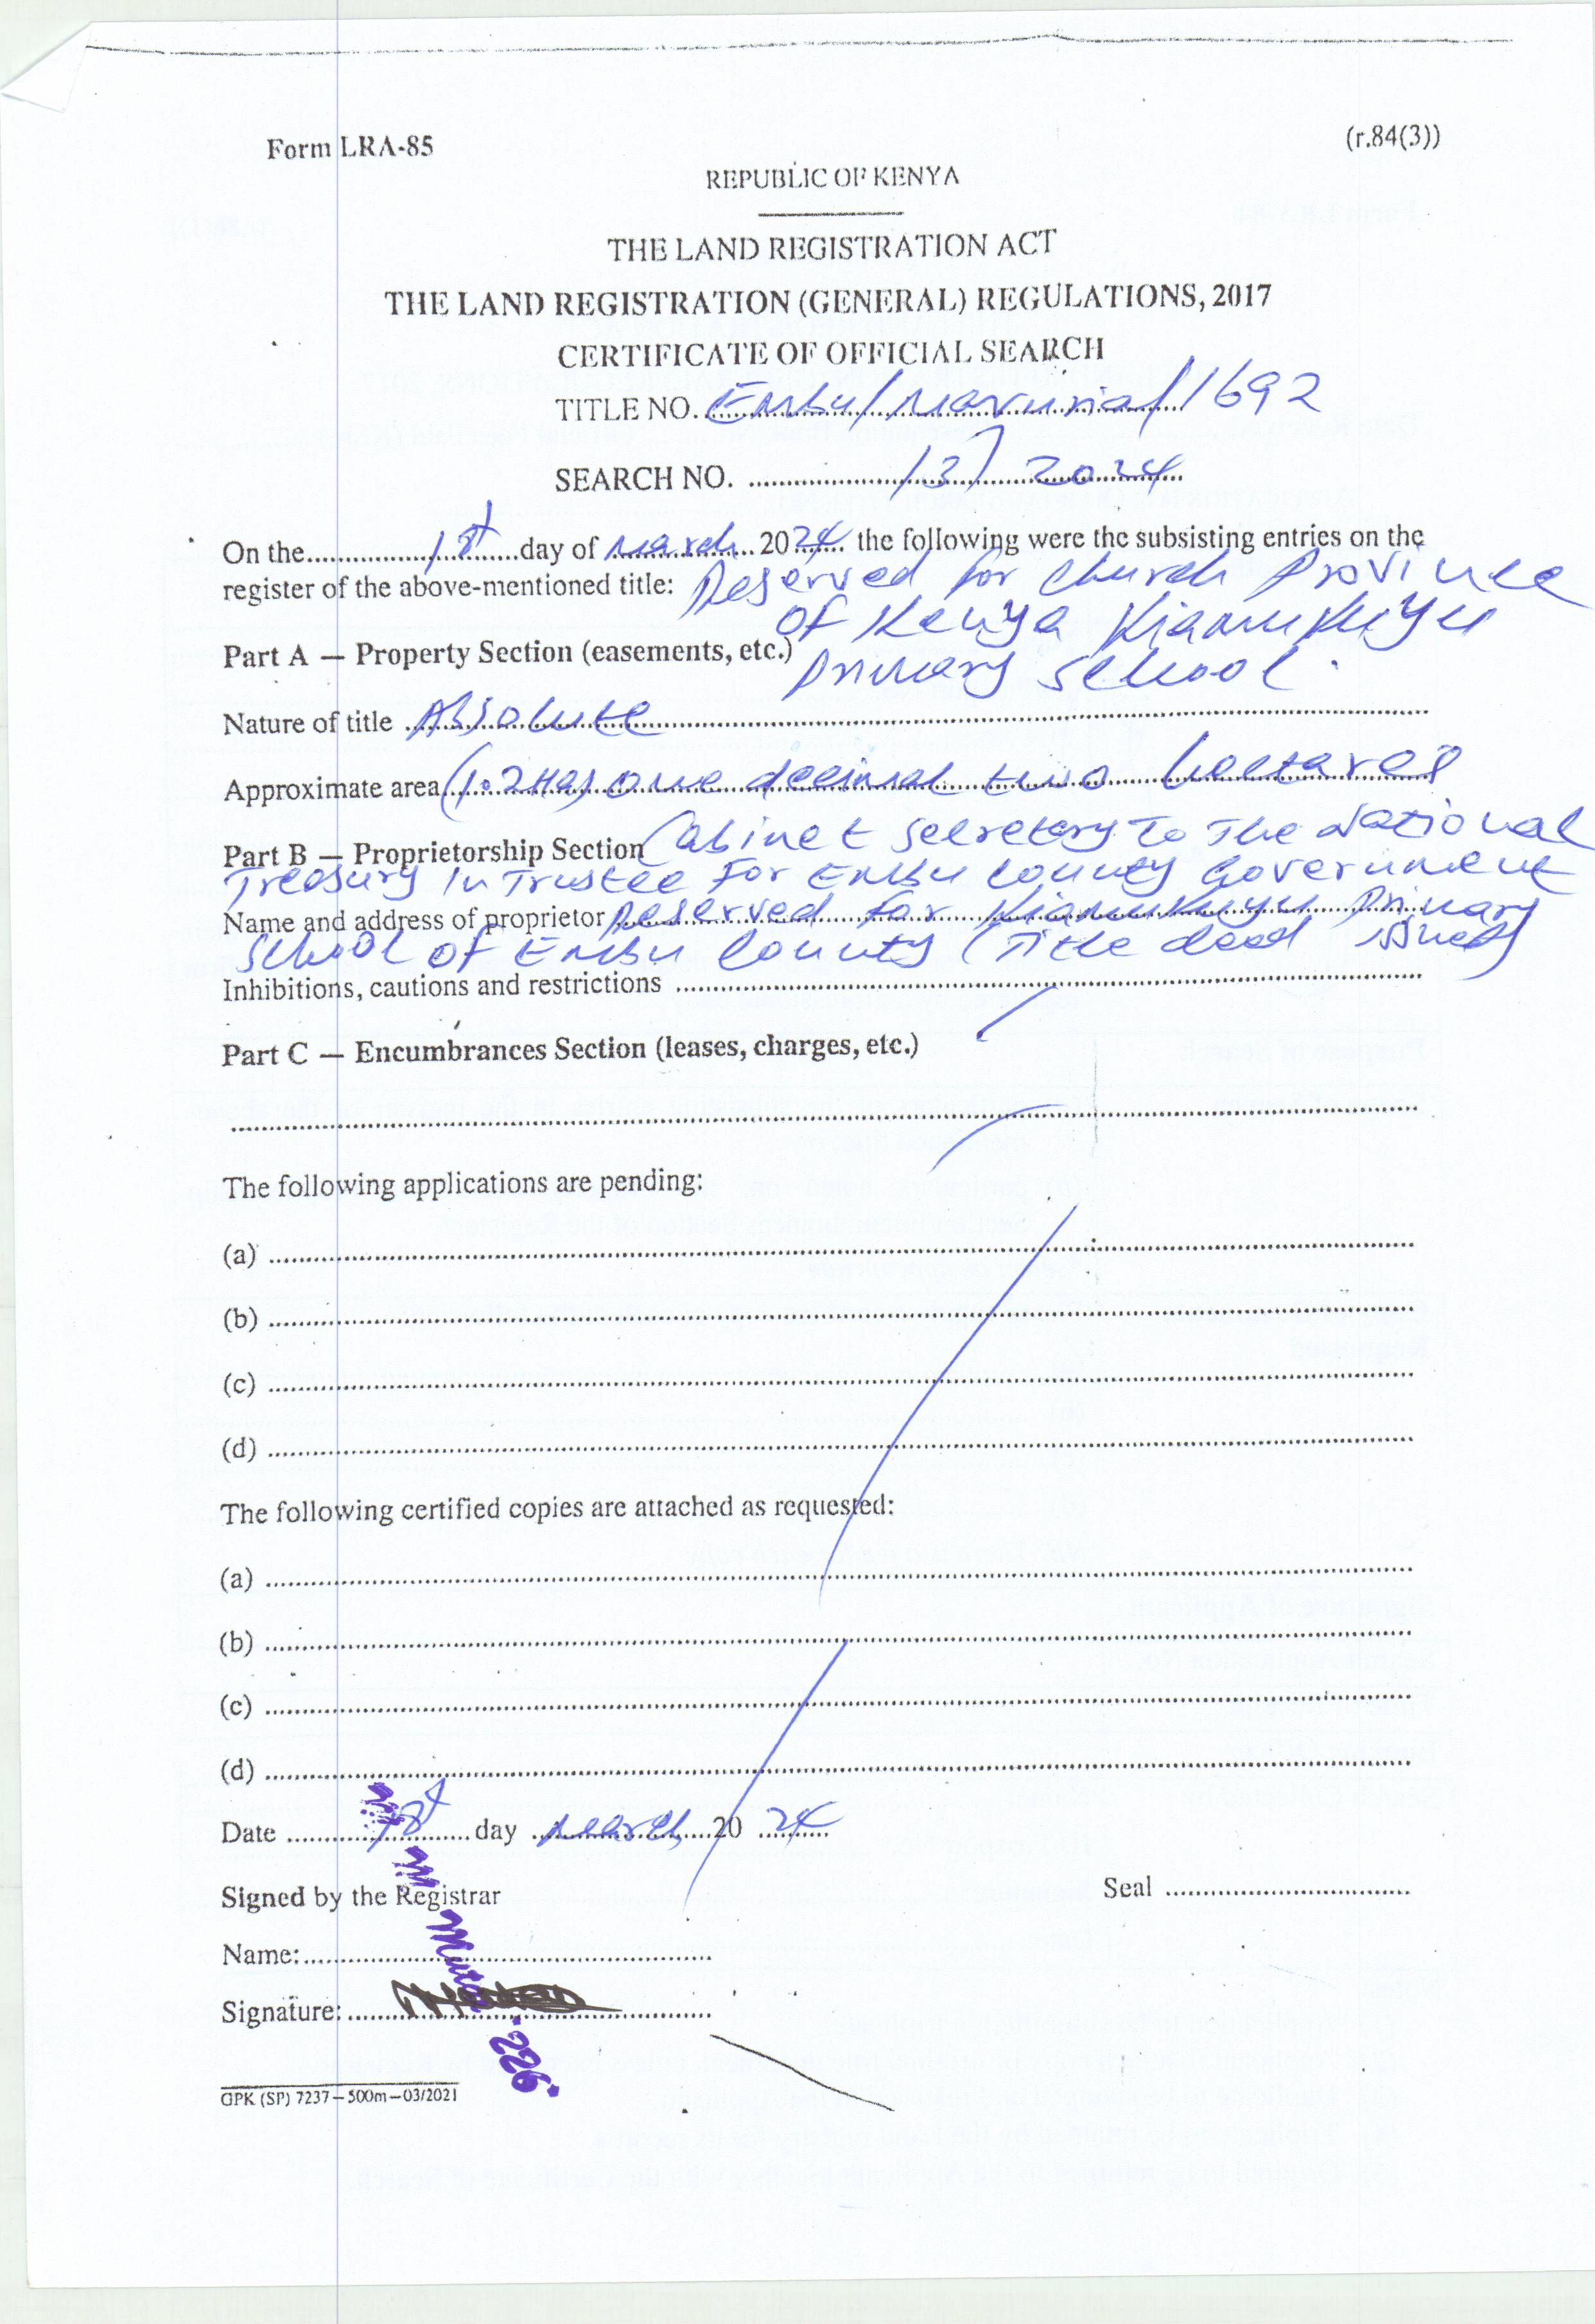 Form LRA-85
(r.84(3))
REPUBLIC OF KENYA
THE LAND REGISTRATION ACT
THE LAND REGISTRATION (GENERAL) REGULATIONS, 2017
CERTIFICATE OF OFFICIAL SEARCH
TITLE NO. Embu/ /1692
SEARCH NO. /3/ 2024
On the 1st day of March 2024 the following were the subsisting entries on the
register of the above-mentioned title: Reserved for Church Province
of Kenya Kiamukuyu
Part A — Property Section (easements, etc.) Primary School.
Nature of title Absolute
Approximate area (1.2Ha) one decimal two hectares
Part B — Proprietorship Section Cabinet Secretary To The National
Treasury In Trustee For Embu County Government
Name and address of proprietor Reserved for Kiamukuyu Primary
School of Embu County (Title deed issued)
Inhibitions, cautions and restrictions
Part C — Encumbrances Section (leases, charges, etc.)
The following applications are pending:
(a)
(b)
(c)
(d)
The following certified copies are attached as requested:
(a)
(b)
(c)
(d)
Date 1st day March 20 24
Signed by the Registrar
Seal
Name:
Signature:
226
GPK (SP) 7237—500m—03/2021